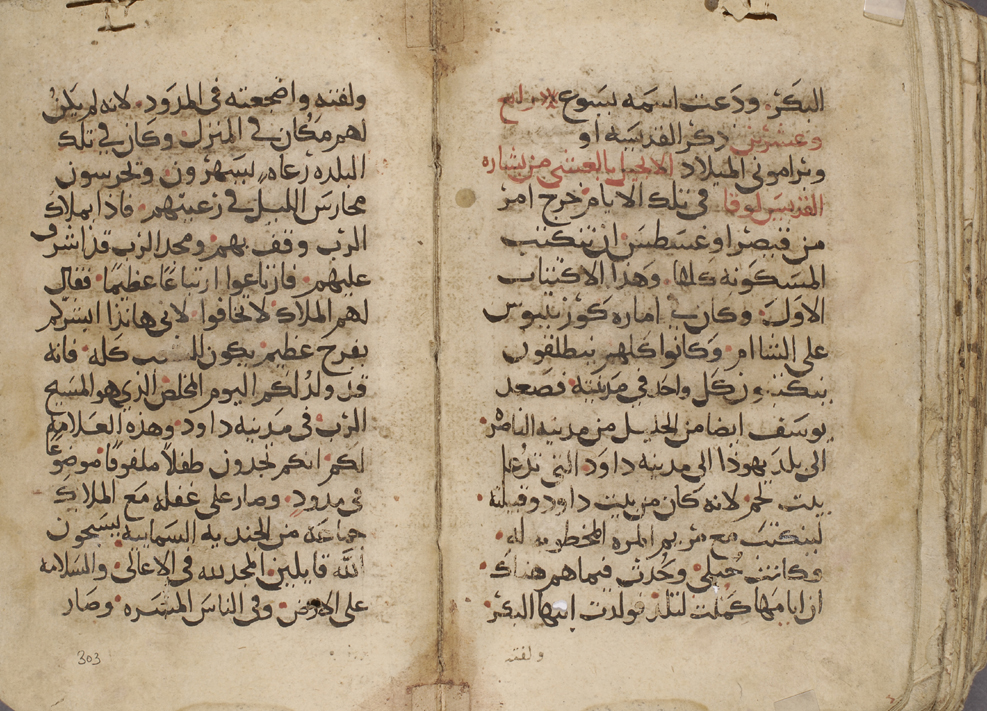 البكر ودعت اسمه يسوع الرابع
وعشرين ذكر القديسه او
وبرامون الميلاد الانجيل بالعشي من بشاره
القديس لوقا في تلك الايام خرج امر
من قيصر اوغسطس ان تكتتب
المسكونه كلها وهذا الاكتتاب
الاول وكان في اماره كورنيوس
على الشاام وكانوا كلهم ينطلقون
يكتتبون كل واحد في مدينته فصعد
يوسف ايضا من الجليل من مدينه الناصره
الى بلد يهودا الى مدينه داود التى تدعا
بيت لحم لانه كان من بيت داود وقبيلته
ليكتتب مع مريم المره المخطوبه له
وكانت حبلى وحدث فيما هم هناك
ان ايامها كملت لتلد فولدت ابنها البكر
ولفته
ولفته واضجعته في المدود لانه لم يكن
لهم مكان في المنزل وكان في تلك
البلده رعاه يسهرون ويحرسون
محارس الليل في رعيتهم فاذا بملاك
الرب وقف بهم ومجد الرب قد اشرف
عليهم فارتاعوا ارتياعا عظيما فقال
لهم الملاك لا تخافوا لانى هانذا ابشركم
بفرح عظيم يكون كله فانه
قد ولد لكم اليوم المخلص الذي هو المسيح
الرب في مدينه داود وهذه العلامه
لكم انكم تجدون طفلا ملفوفا موضوعا
في مدود وصار على غفله مع الملاك
جماعه من الجنديه السماييه يسبحون
الله قايلين المجد لله في الاعالى والسلامه
على الارض وفي الناس المسره وصار
303